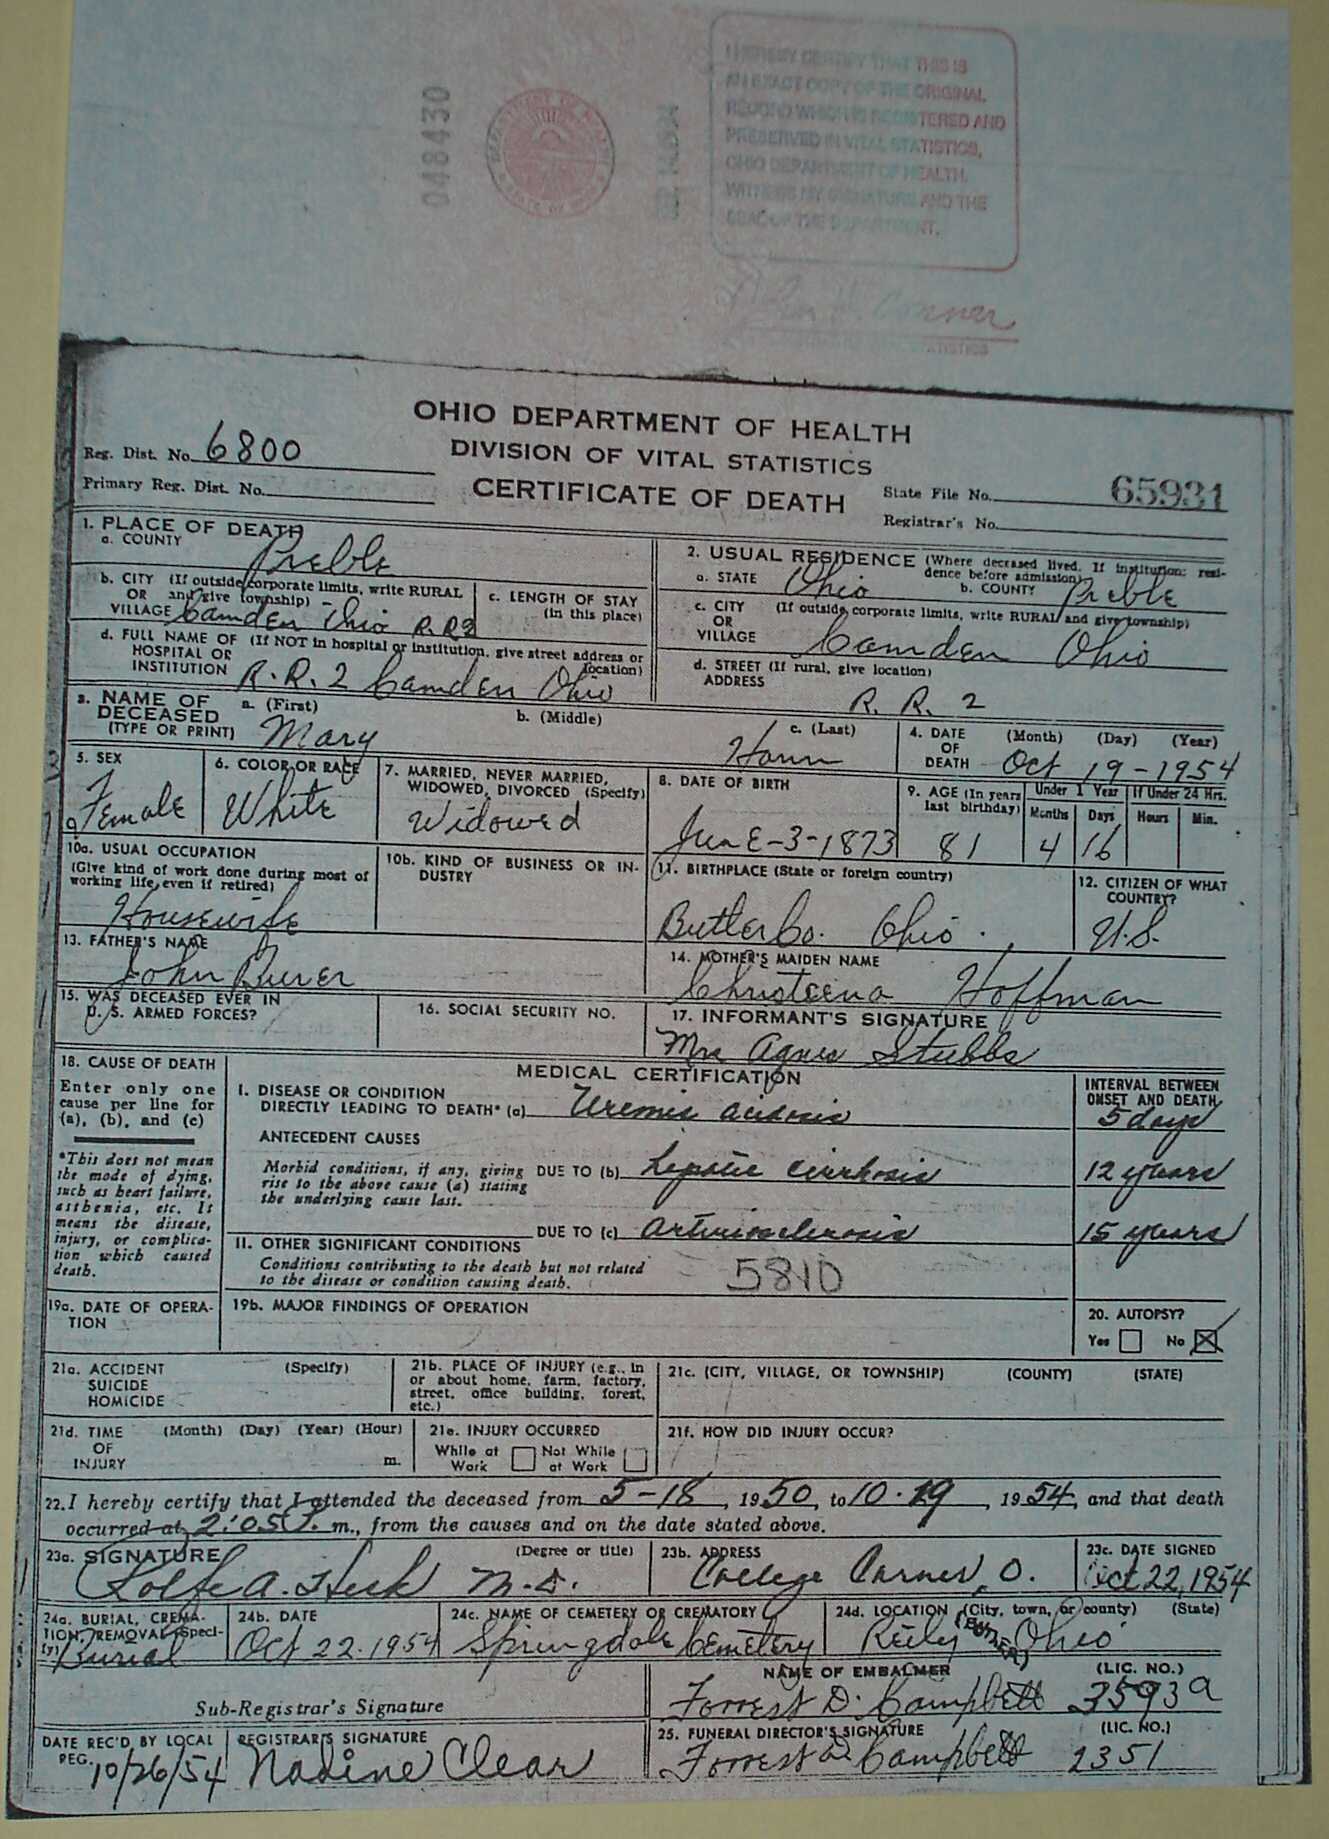 048430
I HEREBY CERTIFY THAT THIS IS
AN EXACT COPY OF THE ORIGINAL
RECORD WHICH IS REGISTERED AND
PRESERVED IN VITAL STATISTICS,
OHIO DEPARTMENT OF HEALTH.
WITNESS MY SIGNATURE AND THE
SEAL OF THE DEPARTMENT.
OHIO DEPARTMENT OF HEALTH
DIVISION OF VITAL STATISTICS
CERTIFICATE OF DEATH
Reg. Dist. No. 6800
Primary Reg. Dist. No.
State File No. 65931
Registrar's No.
1. PLACE OF DEATH
a. COUNTY Preble
b. CITY (If outside corporate limits, write RURAL
OR and give township)
VILLAGE Camden Ohio R.R2
c. LENGTH OF STAY
(in this place)
d. FULL NAME OF (If NOT in hospital or institution, give street address or
HOSPITAL OR location)
INSTITUTION R.R.2 Camden Ohio
2. USUAL RESIDENCE (Where deceased lived. If institution: resi-
dence before admission)
a. STATE Ohio b. COUNTY Preble
c. CITY (If outside corporate limits, write RURAL and give township)
OR
VILLAGE Camden Ohio
d. STREET (If rural, give location)
ADDRESS R. R. 2
3. NAME OF a. (First) b. (Middle) c. (Last)
DECEASED
(TYPE OR PRINT) Mary Hann
4. DATE (Month) (Day) (Year)
OF
DEATH Oct 19-1954
5. SEX
Female
6. COLOR OR RACE
White
7. MARRIED, NEVER MARRIED,
WIDOWED, DIVORCED (Specify)
Widowed
8. DATE OF BIRTH
June-3-1873
9. AGE (In years
last birthday)
81
Under 1 Year
Months Days
4 16
If Under 24 Hrs.
Hours Min.
10a. USUAL OCCUPATION
(Give kind of work done during most of
working life, even if retired)
Housewife
10b. KIND OF BUSINESS OR IN-
DUSTRY
11. BIRTHPLACE (State or foreign country)
Butler Co. Ohio.
12. CITIZEN OF WHAT
COUNTRY?
U.S.
13. FATHER'S NAME
John
14. MOTHER'S MAIDEN NAME
Christeena Hoffman
15. WAS DECEASED EVER IN
U. S. ARMED FORCES?
16. SOCIAL SECURITY NO.
17. INFORMANT'S SIGNATURE
Mrs Agnes Stubbs
18. CAUSE OF DEATH
Enter only one
cause per line for
(a), (b), and (c)
*This does not mean
the mode of dying,
such as heart failure,
asthenia, etc. It
means the disease,
injury, or complica-
tion which caused
death.
MEDICAL CERTIFICATION
I. DISEASE OR CONDITION
DIRECTLY LEADING TO DEATH* (a) Uremic acidosis
ANTECEDENT CAUSES
Morbid conditions, if any, giving DUE TO (b) hepatic cirrhosis
rise to the above cause (a) stating
the underlying cause last.
DUE TO (c) arteriosclerosis
INTERVAL BETWEEN
ONSET AND DEATH
5 days
12 years
15 years
II. OTHER SIGNIFICANT CONDITIONS
Conditions contributing to the death but not related
to the disease or condition causing death.
5810
19a. DATE OF OPERA-
TION
19b. MAJOR FINDINGS OF OPERATION
20. AUTOPSY?
Yes No
21a. ACCIDENT (Specify)
SUICIDE
HOMICIDE
21b. PLACE OF INJURY (e.g., in
or about home, farm, factory,
street, office building, forest,
etc.)
21c. (CITY, VILLAGE, OR TOWNSHIP) (COUNTY) (STATE)
21d. TIME (Month) (Day) (Year) (Hour)
OF
INJURY m.
21e. INJURY OCCURRED
While at Not While
Work at Work
21f. HOW DID INJURY OCCUR?
22. I hereby certify that I attended the deceased from 5-18, 1950, to 10-19, 1954, and that death
occurred at 2:05 m., from the causes and on the date stated above.
23a. SIGNATURE (Degree or title)
Rolfe A. Heck M.D.
23b. ADDRESS
College Corner, O.
23c. DATE SIGNED
Oct 22, 1954
24a. BURIAL, CREMA-
TION, REMOVAL (Speci-
fy)
Burial
24b. DATE
Oct 22. 1954
24c. NAME OF CEMETERY OR CREMATORY
Springdale Cemetery
24d. LOCATION (City, town, or county) (State)
Reily (BUTLER) Ohio
Sub-Registrar's Signature
NAME OF EMBALMER (LIC. NO.)
Forrest D. Campbell 3593a
DATE REC'D BY LOCAL
REG.
10/26/54
REGISTRAR'S SIGNATURE
Nadine Clear
25. FUNERAL DIRECTOR'S SIGNATURE (LIC. NO.)
Forrest D Campbell 2351